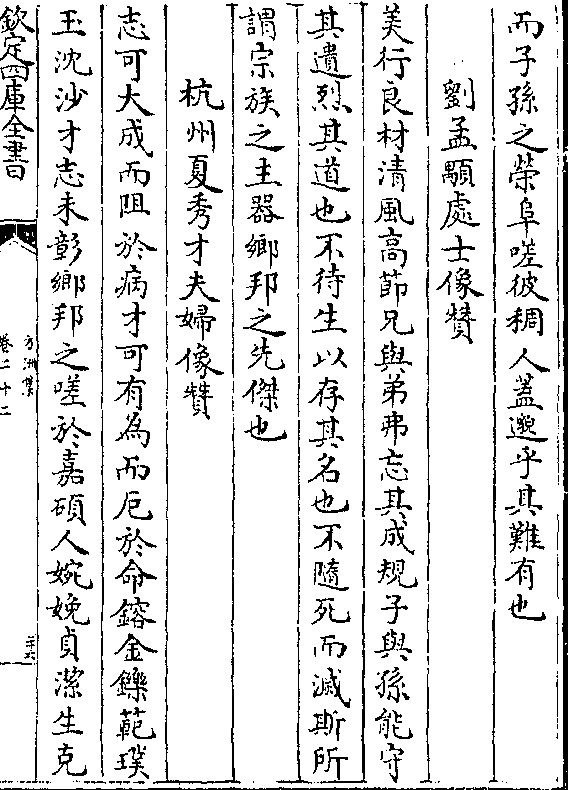 而子孫之榮阜嗟彼稠人蓋邈乎其難有也
劉孟顒處士像贊
美行良材清風高節兄與弟弗忘其成規子與孫能守
其遺烈其道也不待生以存其名也不隨死而滅斯所
謂宗族之主器鄉邦之先傑也
杭州夏秀才夫婦像贊
志可大成而阻於病才可有為而厄於命鎔金鑠範璞
玉沈沙才志未彰鄉邦之嗟於嘉碩人婉娩貞潔生克
欽定四庫全書
方洲集
卷二十二